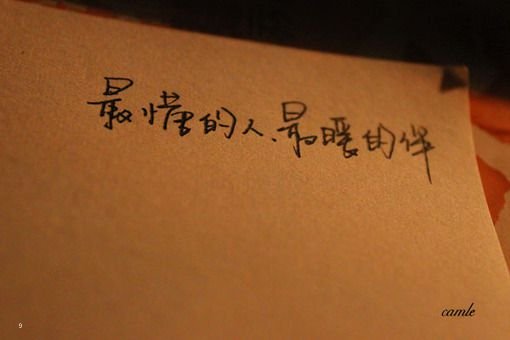 最懂的人、最暖的伴
camle
9